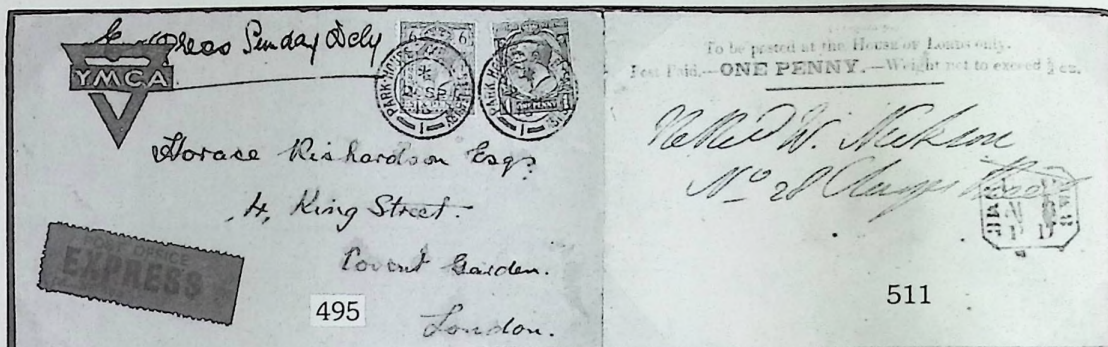 Express Sunday Dely
YMCA
6 6
PARK HOUSE
PARK HOUSE
SP
1
Horace Richardson Esqr
4, King Street.
Covent Garden.
London.
POST OFFICE
EXPRESS
495
To be posted at the House of Lords only.
Post Paid.—ONE PENNY.—Weight not to exceed ½ oz.
W.
No 28
511